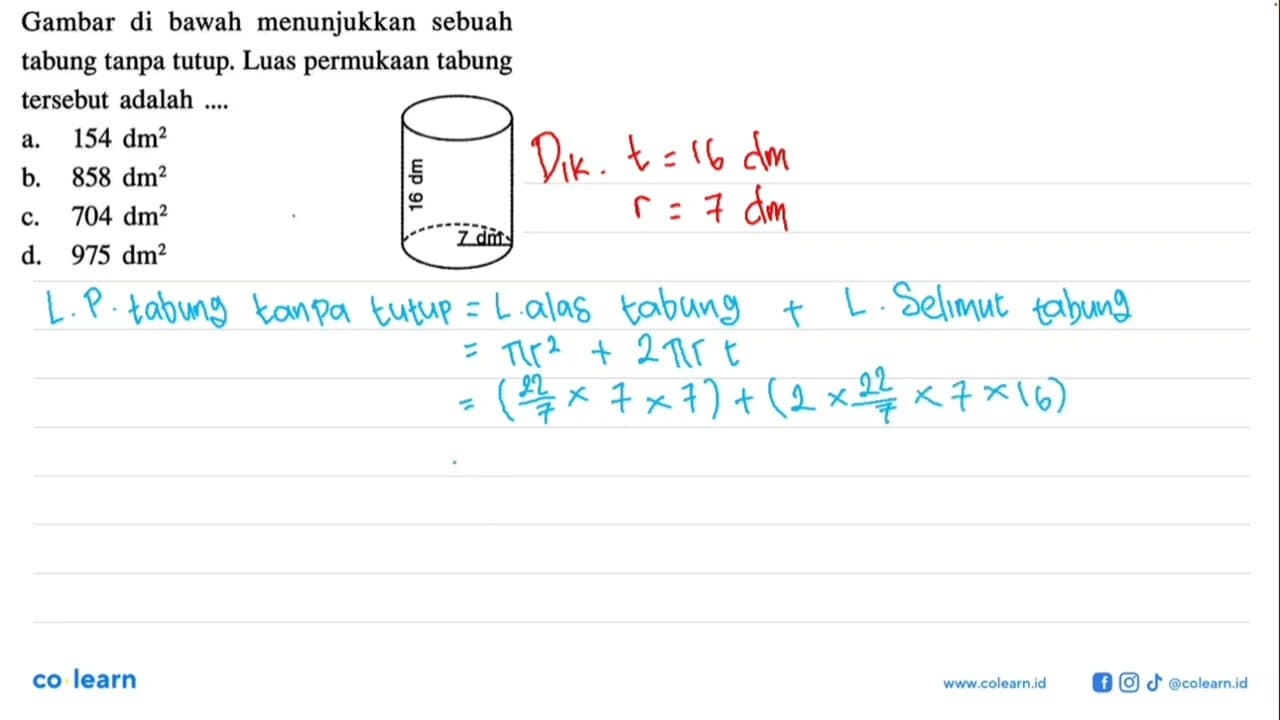 Gambar di bawah menunjukkan sebuah
tabung tanpa tutup. Luas permukaan tabung
tersebut adalah ....
a. 154 dm²
b. 858 dm²
c. 704 dm²
d. 975 dm²
16 dm
7 dm
Dik. t = 16 dm
r = 7 dm
L.P. tabung tanpa tutup = L.alas tabung + L. Selimut tabung
= πr² + 2πr t
= (22/7 × 7 × 7) + (2 × 22/7 × 7 × 16)
co learn
www.colearn.id
@colearn.id